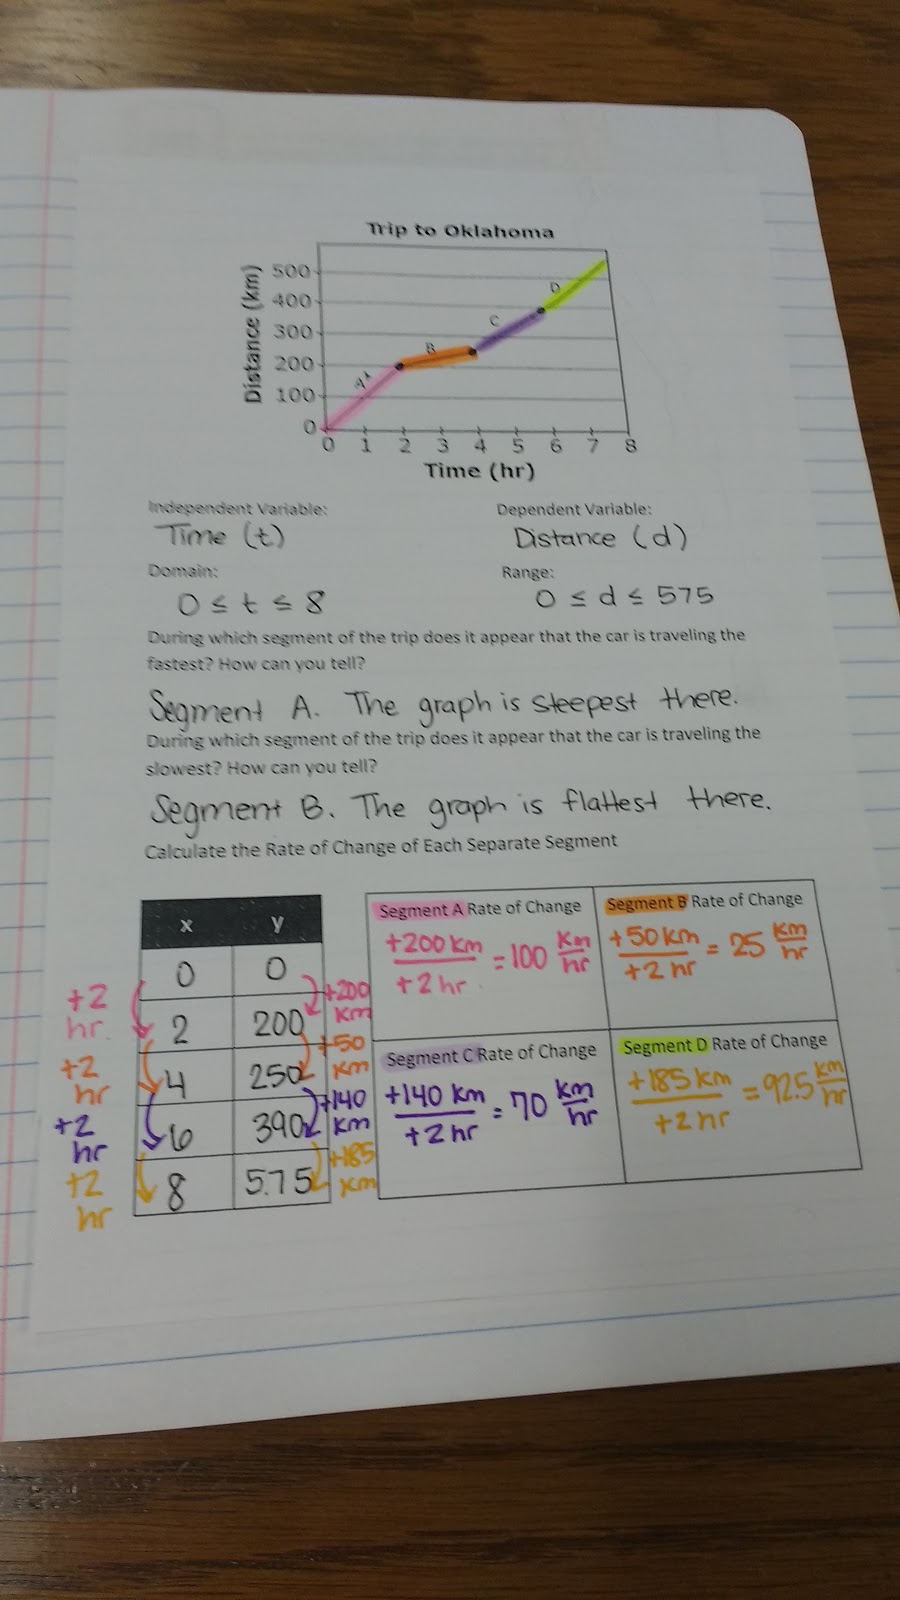 Trip to Oklahoma
Distance (km)
500
400
300
200
100
0
A
B
C
D
0 1 2 3 4 5 6 7 8
Time (hr)
Independent Variable: Dependent Variable:
Time (t) Distance (d)
Domain: Range:
0 ≤ t ≤ 8 0 ≤ d ≤ 575
During which segment of the trip does it appear that the car is traveling the
fastest? How can you tell?
Segment A. The graph is steepest there.
During which segment of the trip does it appear that the car is traveling the
slowest? How can you tell?
Segment B. The graph is flattest there.
Calculate the Rate of Change of Each Separate Segment
x y
0 0
2 200
4 250
6 390
8 575
+2
hr.
+2
hr
+2
hr
+2
hr
+200
km
+50
km
+140
km
+185
km
Segment A Rate of Change
+200 km / +2 hr = 100 km/hr
Segment B Rate of Change
+50 km / +2 hr = 25 km/hr
Segment C Rate of Change
+140 km / +2 hr = 70 km/hr
Segment D Rate of Change
+185 km / +2 hr = 92.5 km/hr